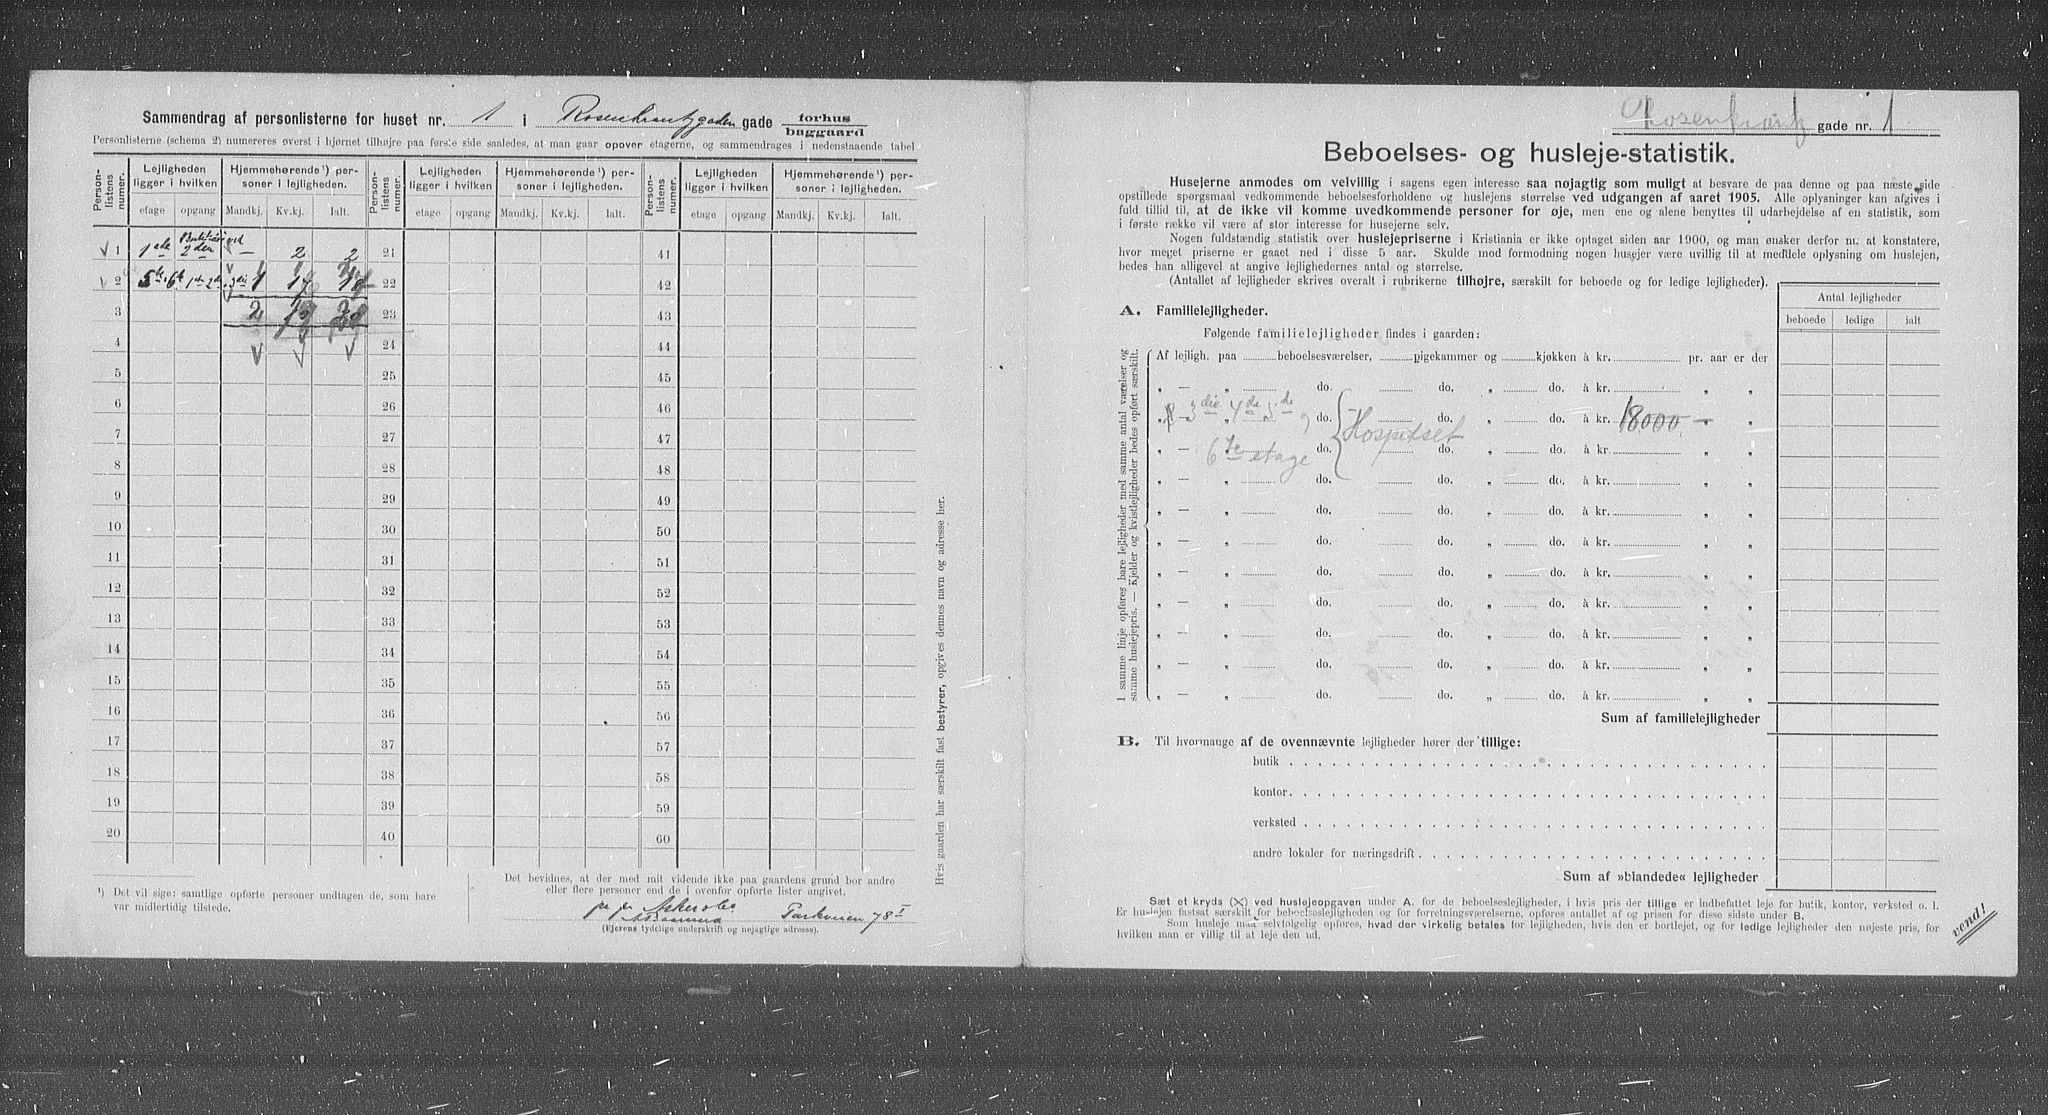 Sammendrag af personlisterne for huset nr. 1 i Rosenkrantzgaden gade forhus baggaard
Personlisterne (schema 2) numereres øverst i hjørnet tilhøjre paa første side saaledes, at man gaar opover etagerne, og sammendrages i nedenstaaende tabel
Person-listens numer. Lejligheden ligger i hvilken Hjemmehørende¹) personer i lejligheden. Person-listens numer. Lejligheden ligger i hvilken Hjemmehørende¹) personer i lejligheden. Person-listens numer. Lejligheden ligger i hvilken Hjemmehørende¹) personer i lejligheden.
etage opgang Mandkj. Kv.kj. Ialt. etage opgang Mandkj. Kv.kj. Ialt. etage opgang Mandkj. Kv.kj. Ialt.
1 1ste 2den — 2 2 21 41
2 5te 6te 1ste 2den 3die 22 42
3 2 23 43
4 24 44
5 25 45
6 26 46
7 27 47
8 28 48
9 29 49
10 30 50
11 31 51
12 32 52
13 33 53
14 34 54
15 35 55
16 36 56
17 37 57
18 38 58
19 39 59
20 40 60
¹) Det vil sige: samtlige opførte personer undtagen de, som bare
var midlertidig tilstede.
Det bevidnes, at der med mit vidende ikke paa gaardens grund bor andre
eller flere personer end de i ovenfor opførte lister angivet.
Parkveien 78 I
(Ejerens tydelige underskrift og nøjagtige adresse).
Hvis gaarden har særskilt fast bestyrer, opgives dennes navn og adresse her.
Rosenkrantz gade nr. 1
Beboelses- og husleje-statistik.
Husejerne anmodes om velvillig i sagens egen interesse saa nøjagtig som muligt at besvare de paa denne og paa næste side
opstillede spørgsmaal vedkommende beboelsesforholdene og huslejens størrelse ved udgangen af aaret 1905. Alle oplysninger kan afgives i
fuld tillid til, at de ikke vil komme uvedkommende personer for øje, men ene og alene benyttes til udarbejdelse af en statistik, som
i første række vil være af stor interesse for husejerne selv.
Nogen fuldstændig statistik over huslejepriserne i Kristiania er ikke optaget siden aar 1900, og man ønsker derfor nu at konstatere,
hvor meget priserne er gaaet ned i disse 5 aar. Skulde mod formodning nogen husejer være uvillig til at meddele oplysning om huslejen,
bedes han alligevel at angive lejlighedernes antal og størrelse.
(Antallet af lejligheder skrives overalt i rubrikerne tilhøjre, særskilt for beboede og for ledige lejligheder).
Antal lejligheder
beboede ledige ialt
A. Familielejligheder.
Følgende familielejligheder findes i gaarden:
I samme linje opføres bare lejligheder med samme antal værelser og
samme huslejepris. — Kjelder og kvistlejligheder bedes opført særskilt.
Af lejligh. paa beboelsesværelser, pigekammer og kjøkken à kr. pr. aar er der
„ — „ do. do. „ do. à kr. „ „
„ — 3die 4de 5de, do. do. „ do. à kr. 18000 — „
„ — 6te etage do. Hospidset do. „ do. à kr. „ „
„ — „ do. do. „ do. à kr. „ „
„ — „ do. do. „ do. à kr. „ „
„ — „ do. do. „ do. à kr. „ „
„ — „ do. do. „ do. à kr. „ „
„ — „ do. do. „ do. à kr. „ „
„ — „ do. do. „ do. à kr. „ „
„ — „ do. do. „ do. à kr. „ „
„ — „ do. do. „ do. à kr. „ „
Sum af familielejligheder
B. Til hvormange af de ovennævnte lejligheder hører der tillige:
butik
kontor
verksted
andre lokaler for næringsdrift
Sum af »blandede« lejligheder
Sæt et kryds (X) ved huslejeopgaven under A. for de beboelseslejligheder, i hvis pris der tillige er indbefattet leje for butik, kontor, verksted o. l.
Er huslejen fastsat særskilt for beboelseslejligheden og for forretningsværelserne, opføres antallet af og prisen for disse sidste under B.
Som husleje maa selvfølgelig opføres, hvad der virkelig betales for lejligheden, hvis den er bortlejet, og for ledige lejligheder den nøjeste pris, for
hvilken man er villig til at leje den ud.
vend!